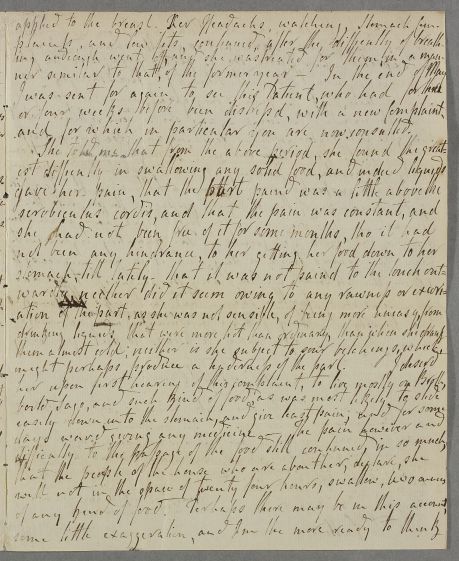 applied to the breast. Her Headachs, watching, Stomach Com-
plaints, and low fits, continued after the difficulty of breath-
ing and cough went off, and she was treated for them in a man-
ner similar to that of the former year — In the end of May
I was sent for again to see this Patient, who had for three
or four weeks before been distress'd, with a new Complaint
and, for which in particular you are now consulted,
She told me that from the above period, she found the great-
est difficulty in swallowing any solid food, and indeed liquids
gave her pain, that the part pain'd was a little above the
scrobiculus cordis, and that the pain was constant, and
she had not been free of it for some months, tho it had
not been any hindrance to her getting her food down to her
stomach till lately. that it was not pain'd to the touch out-
wards, neither did it seem owing to any rawness or excori-
ation of the part, as she was not sensible, of being more uneasy from
drinking liquids that were more hot than ordinary than when she drank
them almost cold, neither is she subject to sour belchings, which
might perhaps produce a tenderness of the part. I desir'd
her upon first hearing of this complaint to live mostly on
Sago, and such kind of food as was most likely to slide
easily down into the stomach, and give least pain, and for some
days waved giving any medicine. The pain however and
difficulty to the passage of the food still continued, in so much,
that the people of the house who are about her, declare, she
will not in the space of twenty four hours, swallow, two ounces
of any kind of food. Perhaps there may be in this account,
some little exaggeration, and I'm the more ready to think